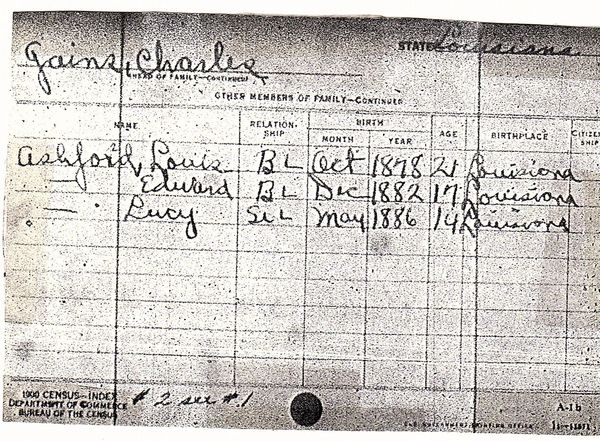 Gains, Charles STATE Louisiana
(HEAD OF FAMILY—CONTINUED)
OTHER MEMBERS OF FAMILY—CONTINUED
NAME RELATION-SHIP BIRTH MONTH YEAR AGE BIRTHPLACE CITIZEN-SHIP
Ashford, Louis B L Oct 1878 21 Louisiana
— Edward B L Dec 1882 17 Louisiana
— Lucy Si L May 1886 14 Louisiana
1900 CENSUS—INDEX # 2 see #1 A-1b
DEPARTMENT OF COMMERCE
BUREAU OF THE CENSUS GOVERNMENT PRINTING OFFICE